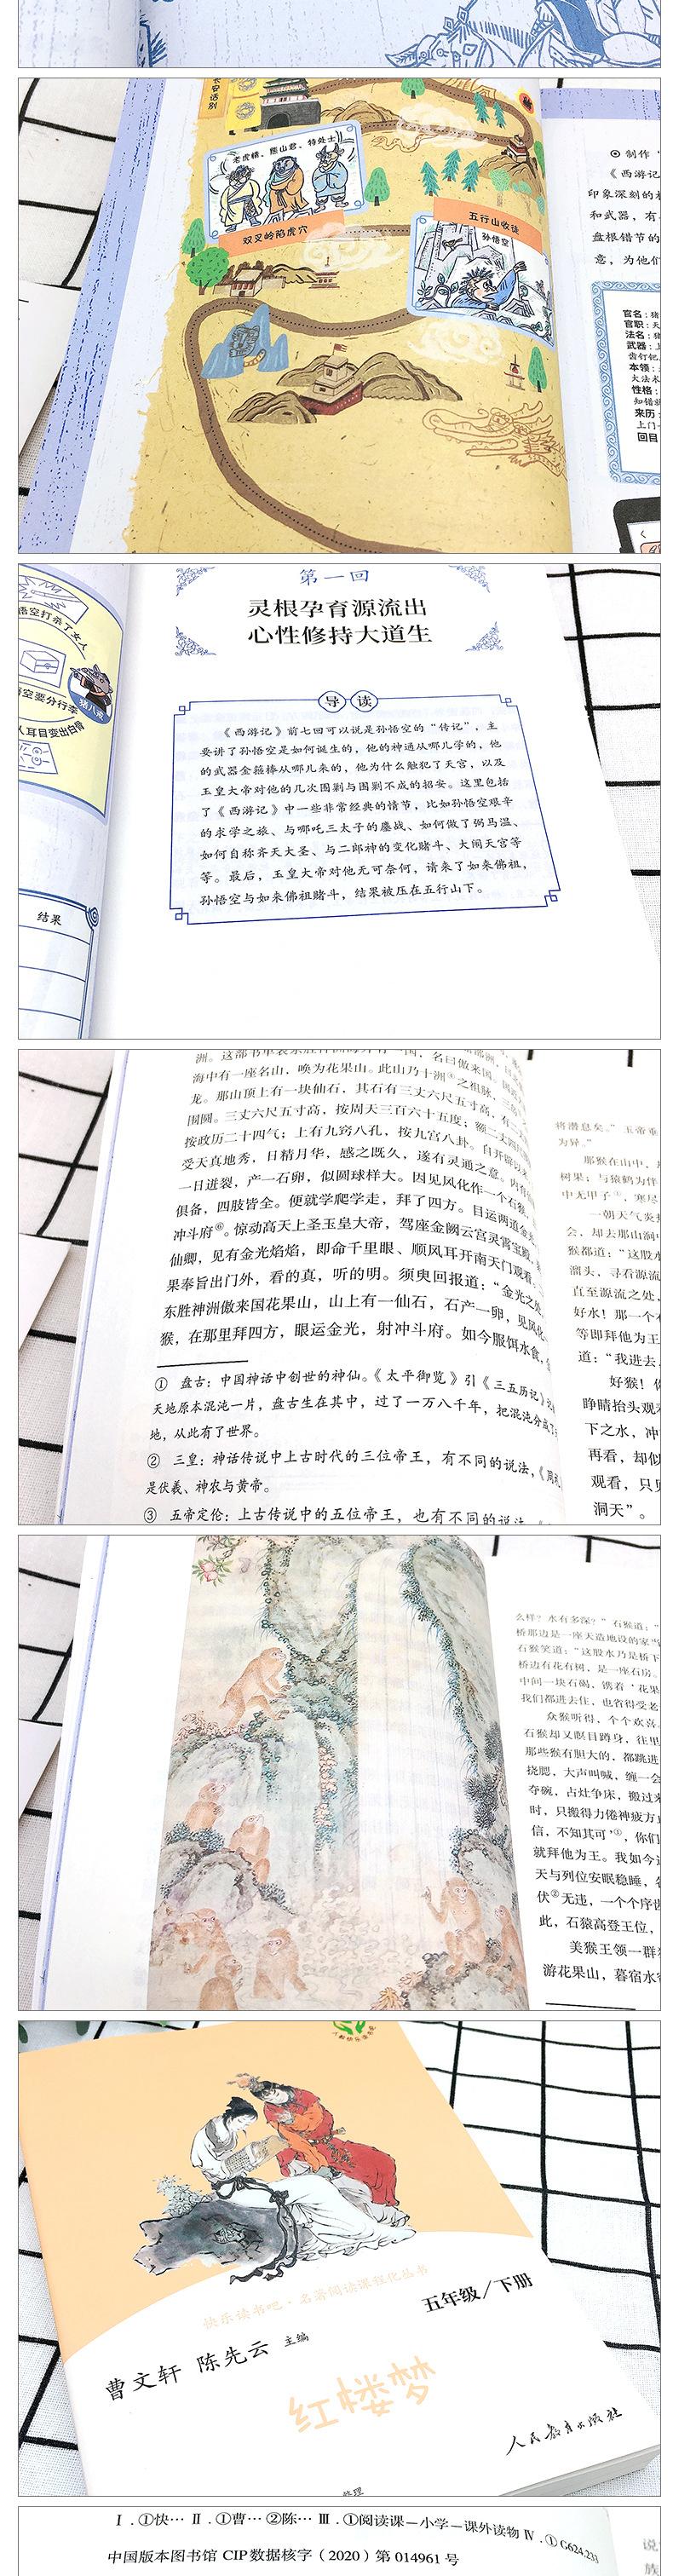 长安话别
老虎精、熊山君、特处士
双叉岭陷虎穴
五行山收徒
孙悟空
⊙ 制作
《西游记》
印象深刻的
和武器，有
盘根错节的
意，为他们
官名：猪
官职：天
法名：猪
武器：上
齿钉钯
本领：
大法术
性格：
知错就
来历：
上门
回目
悟空打杀了女人
猪八戒
悟空要分行李
人耳目变出白骨
结果
第一回
灵根孕育源流出
心性修持大道生
导读
《西游记》前七回可以说是孙悟空的“传记”，主
要讲了孙悟空是如何诞生的，他的神通从哪儿学的，他
的武器金箍棒从哪儿来的，他为什么触犯了天宫，以及
玉皇大帝对他的几次围剿与围剿不成的招安。这里包括
了《西游记》中一些非常经典的情节，比如孙悟空艰辛
的求学之旅、与哪吒三太子的鏖战、如何做了弼马温、
如何自称齐天大圣、与二郎神的变化赌斗、大闹天宫等
等。最后，玉皇大帝对他无可奈何，请来了如来佛祖，
孙悟空与如来佛祖赌斗，结果被压在五行山下。
海中有一座名山，唤为花果山。此山乃十洲④之祖脉，
龙。那山顶上有一块仙石，其石有三丈六尺五寸高，有二
围圆。三丈六尺五寸高，按周天三百六十五度；
按政历二十四气；上有九窍八孔，按九宫八卦。自开辟以来
受天真地秀，日精月华，感之既久，遂有灵通之意。内育
一日迸裂，产一石卵，似圆球样大。因见风化作一个石猴，
俱备，四肢皆全。便就学爬学走，拜了四方。目运两道金光，
冲斗府⑥。惊动高天上圣玉皇大帝，驾座金阙云宫灵霄宝殿，
仙卿，见有金光焰焰，即命千里眼、顺风耳开南天门观看。
果奉旨出门外，看的真，听的明。须臾回报道：“金光之处，
东胜神洲傲来国花果山，山上有一仙石，石产一卵，见风化
猴，在那里拜四方，眼运金光，射冲斗府。如今服饵水食，
① 盘古：中国神话中创世的神仙。《太平御览》引《三五历记》
天地原本混沌一片，盘古生在其中，过了一万八千年，把混沌分成了
地，从此有了世界。
② 三皇：神话传说中上古时代的三位帝王，有不同的说法，《周礼》
是伏羲、神农与黄帝。
③ 五帝定伦：上古传说中的五位帝王，也有不同的说法
将潜息矣。”玉帝垂
为异。”
那猴在山中，
树果；与猿鹤为伴
中无甲子，寒尽
一朝天气炎
会，却去那山涧
猴都道：“这股水
溜头，寻看源流
直至源流之处，
好水！那一个
等即拜他为王
道：“我进去，
好猴！你
睁睛抬头观
下之水，冲
再看，却似
观看，只见
洞天”。
么样？水有多深？”石猴道：“
桥那边是一座天造地设的家当
石猴笑道：“这股水乃是桥下
桥边有花有树，是一座石房。
中间一块石碣，镌着‘花果
我们都进去住，也省得受老
众猴听得，个个欢喜。
石猴却又瞑目蹲身，往里
那些猴有胆大的，都跳进
挠腮，大声叫喊，缠一会
夺碗，占灶争床，搬过来
时，只搬得力倦神疲方止
信，不知其可’①，你们
就拜他为王。我如今进
天与列位安眠稳睡，各
伏②无违，一个个序齿
此，石猿高登王位，
美猴王领一群猿
游花果山，暮宿水帘
快乐读书吧·名著阅读课程化丛书
五年级/下册
曹文轩 陈先云 主编
红楼梦
人民教育出版社
整理
Ⅰ.①快… Ⅱ.①曹… ②陈… Ⅲ.①阅读课－小学－课外读物 Ⅳ.①G624.233
中国版本图书馆 CIP 数据核字（2020）第 014961 号